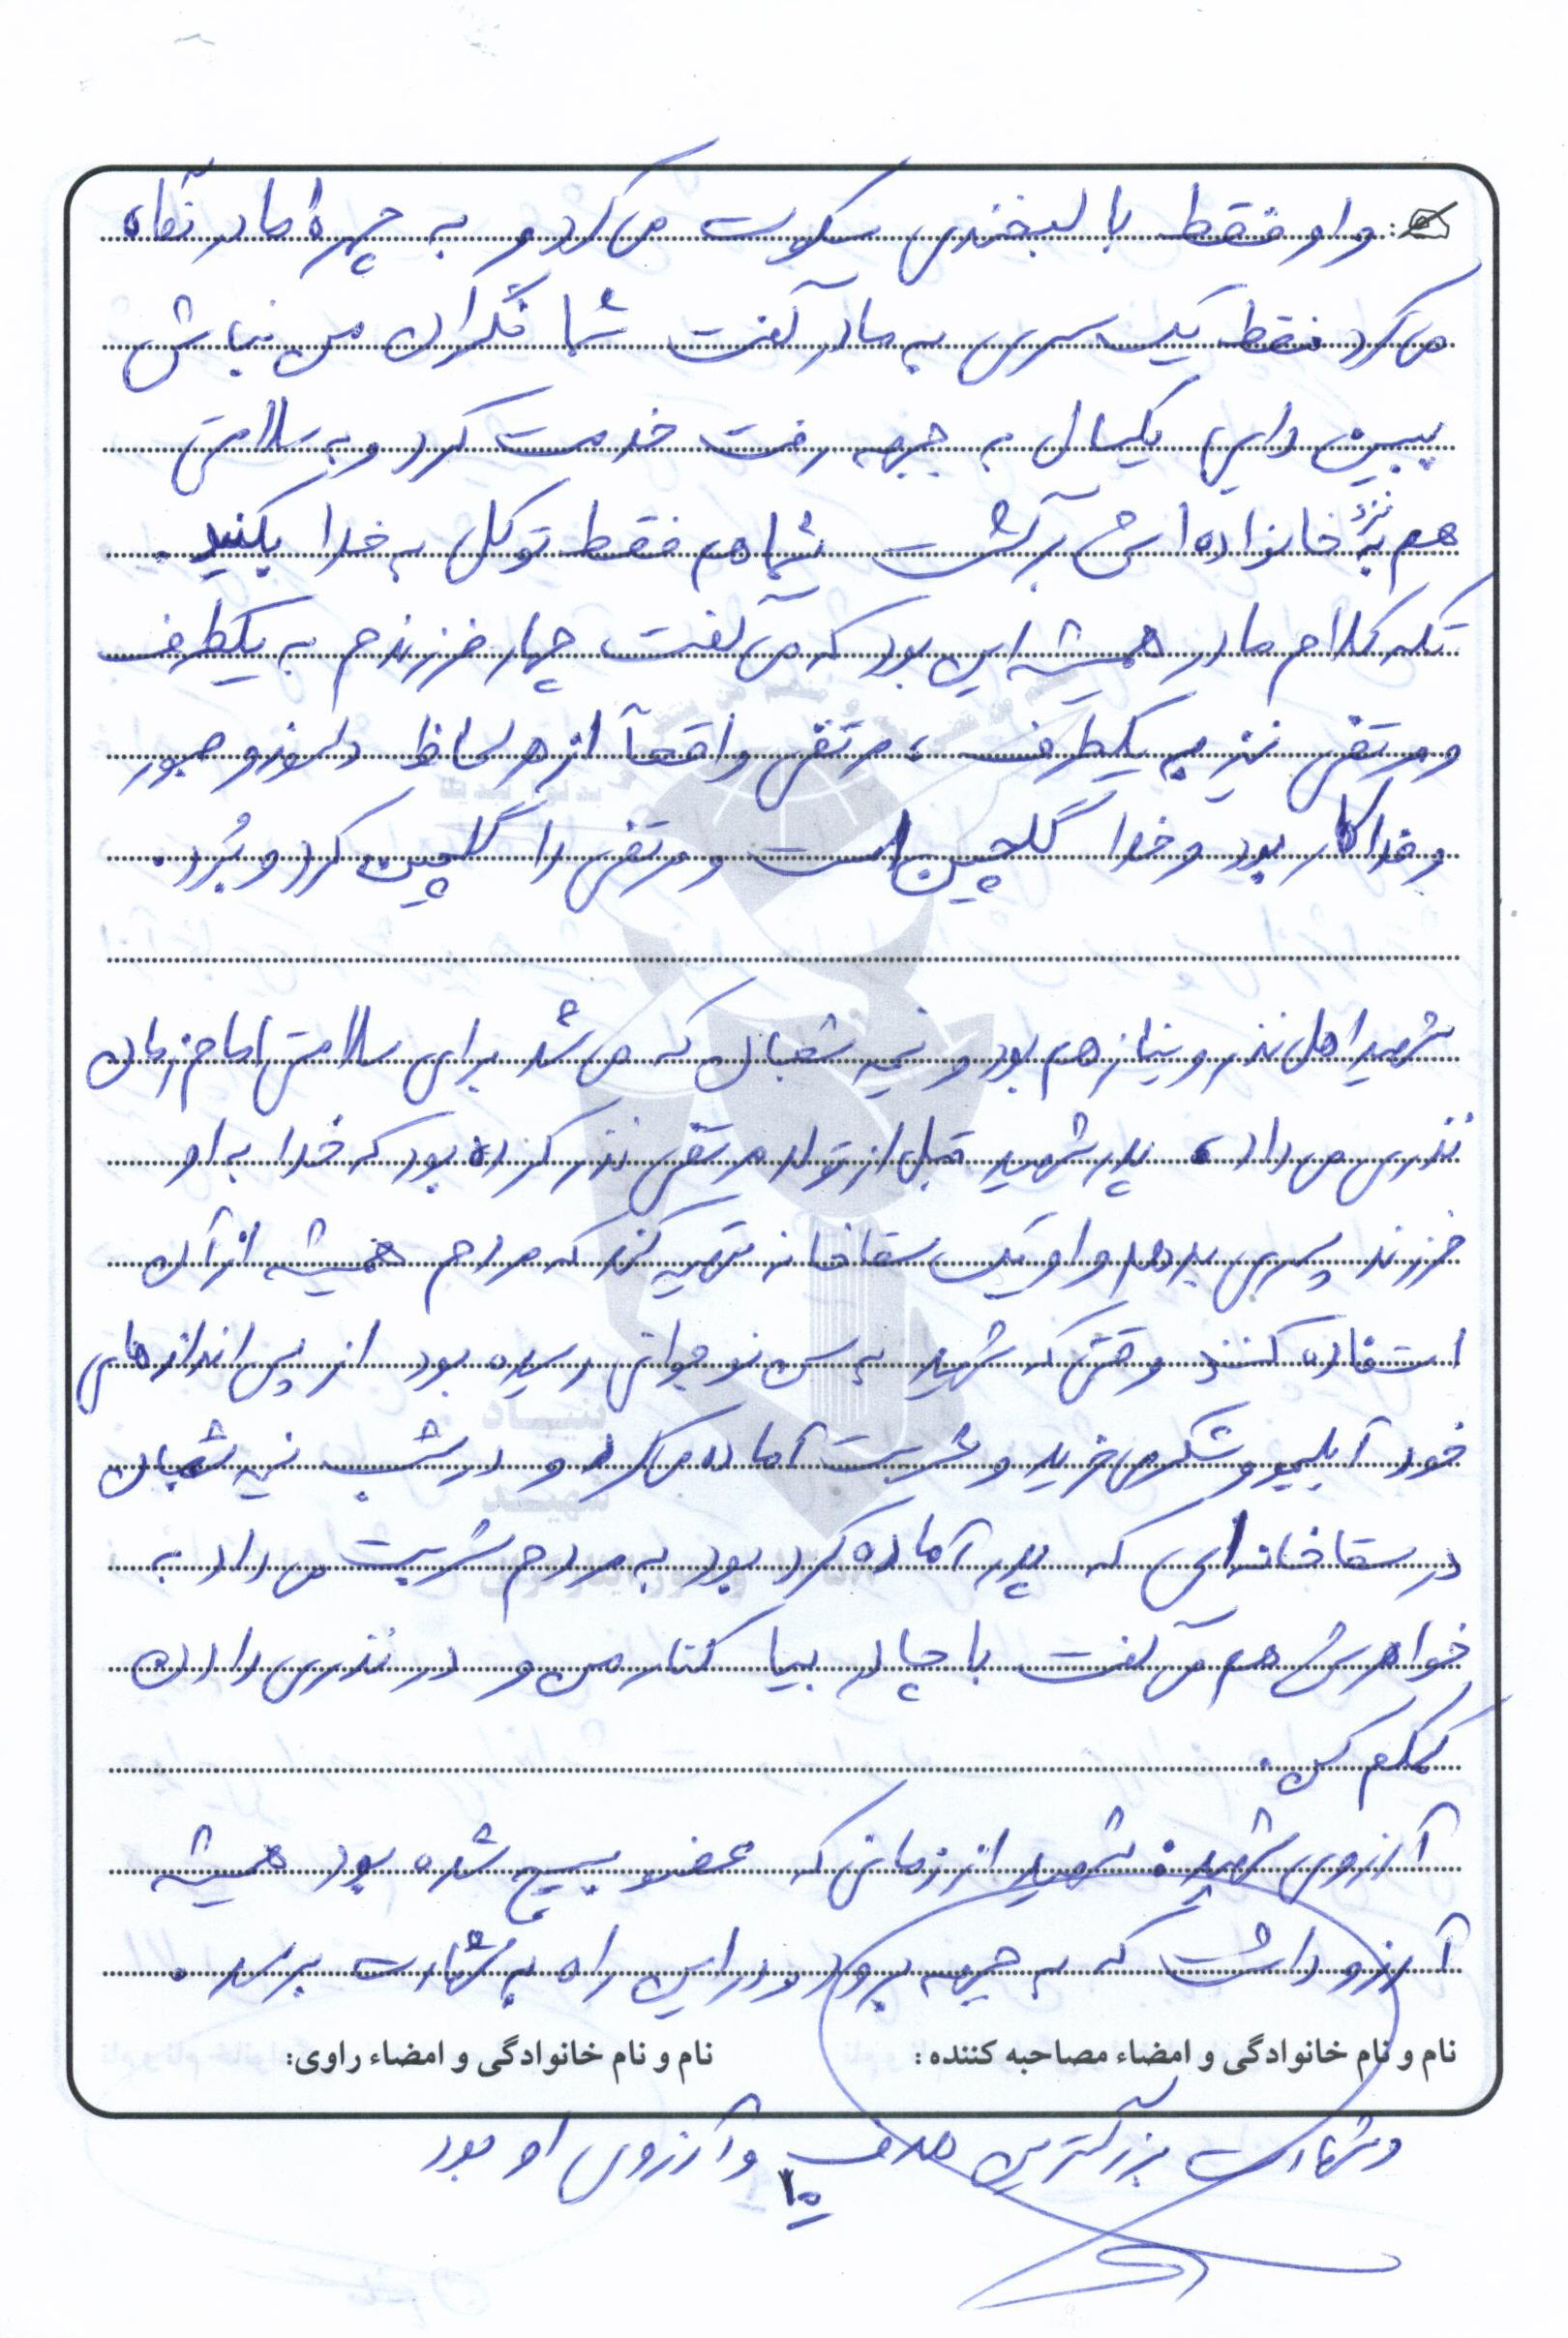 و او فقط با لبخندی سکوت می کرد و به چهرهٔ مادر نگاه
می کرد فقط یک سری به مادر گفت شما نگران من نباش
ببین دایی یکسال به جبهه رفت خدمت کرد و به سلامتی
هم نزد خانواده اش برگشت شما هم فقط توکل به خدا بکنید.
تکه کلام مادر همیشه این بود که می گفت چهار فرزندم به یکطرف
و مرتضی نیز به یکطرف، مرتضی واقعاً از هر لحاظ دلسوز و صبور
و فداکار بود و خدا گلچین است و مرتضی را گلچین کرد و بُرد.
شهید اهل نذر و نیاز هم بود و نیمه شعبان که می شد برای سلامتی امام زمان
نذری می داد، پدر شهید قبل از تولد مرتضی نذر کرده بود که خدا به او
فرزند پسری بدهد و او یک سقاخانه تهیه کند که مردم همیشه از آن
استفاده کنند وقتی که شهید به سن نوجوانی رسیده بود از پس اندازهای
خود آبلیمو و شکر می خرید و شربت آماده می کرد و در شب نیمه شعبان
در سقاخانه ای که پدر آماده کرد بود به مردم شربت می داد به
خواهرش هم می گفت با چادر بیا کنار من و در نذری دادن
کمکم کن.
آرزوی شهید: شهید از زمانی که عضو بسیج شده بود همیشه
آرزو داشت که به جبهه برود و در این راه به شهادت برسد.
نام و نام خانوادگی و امضاء مصاحبه کننده: نام و نام خانوادگی و امضاء راوی:
و شهادت بزرگترین هدف و آرزوی او بود
۱۰